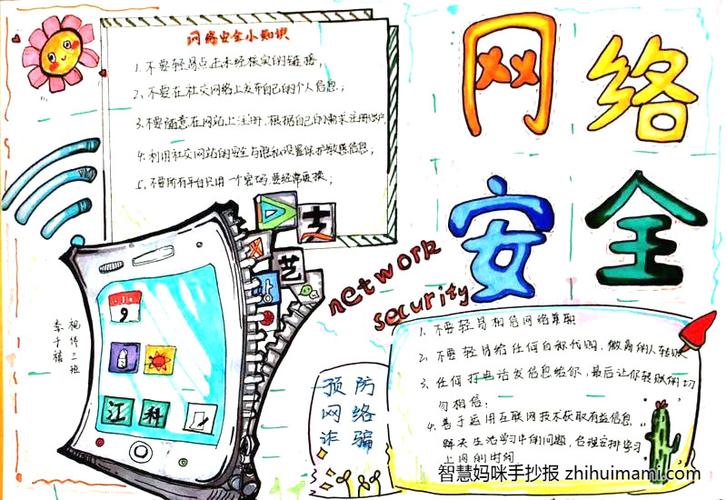 网络
安全
network
security
网络安全小知识
1、不要轻易点击未经核实的链接;
2、不要在社交网络上发布自己的个人信息;
3、不要随意在网站上注册,根据自己的需求注册账户
4、利用社交网站的安全与隐私设置保护敏感信息;
5、不要所有平台只用一个密码,要经常更换;
艺
9
江
科
预防
网络
诈骗
1、不要轻易相信网络兼职
2、不要轻易给任何自称代购、微商的人转账
3、任何打电话发信息给你,最后让你转账的切
勿相信;
4、善于运用互联网技术获取有益信息,
解决生活学习中的问题,合理安排学习
上网的时间
智慧妈咪手抄报 zhihuimami.com